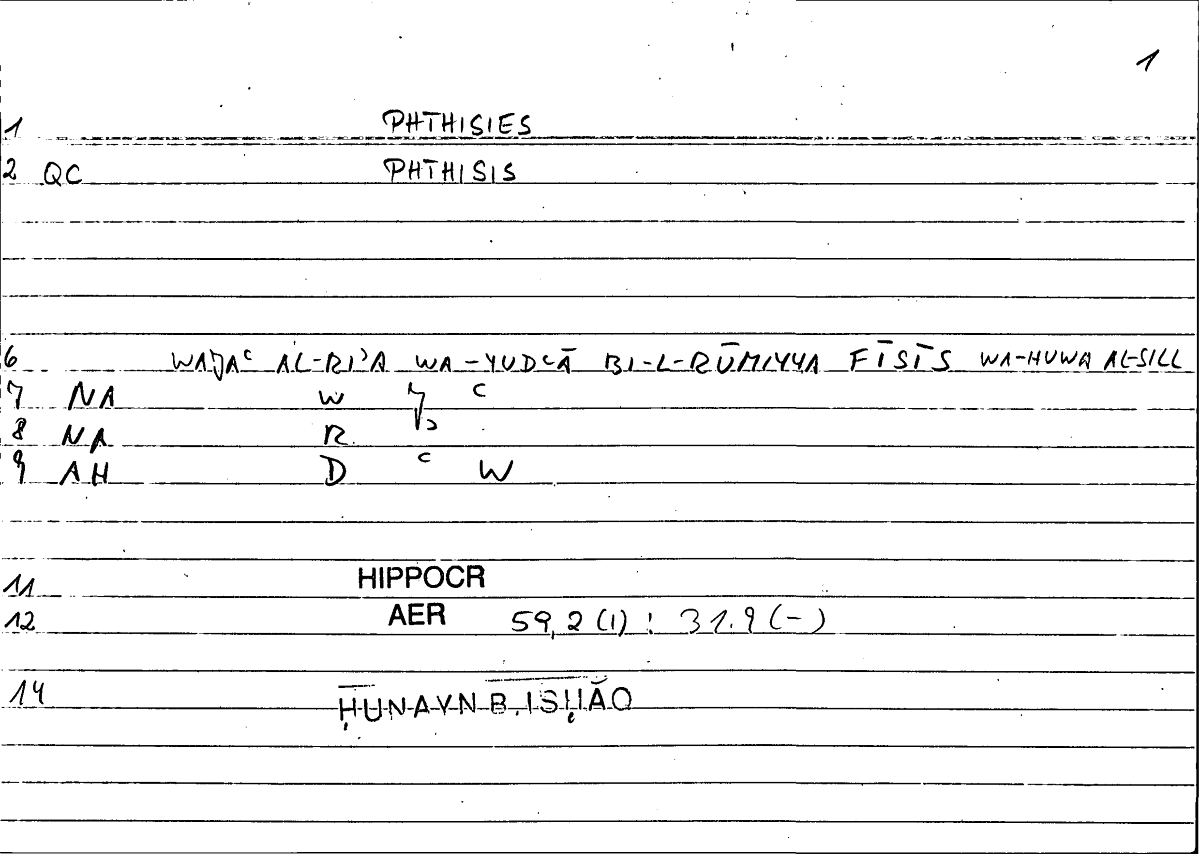 1
1 PHTHISIES
2 QC PHTHISIS
6 WAǦAʿ AL-RIʾA WA-YUDʿĀ BI-L-RŪMIYYA FĪSĪS WA-HUWA AL-SILL
7 NA W Ǧ ʿ
8 NA R ʾ
9 AH D ʿ W
11 HIPPOCR
12 AER 59,2 (1) : 31.9 (-)
14 ḤUNAYN B. ISḤĀQ